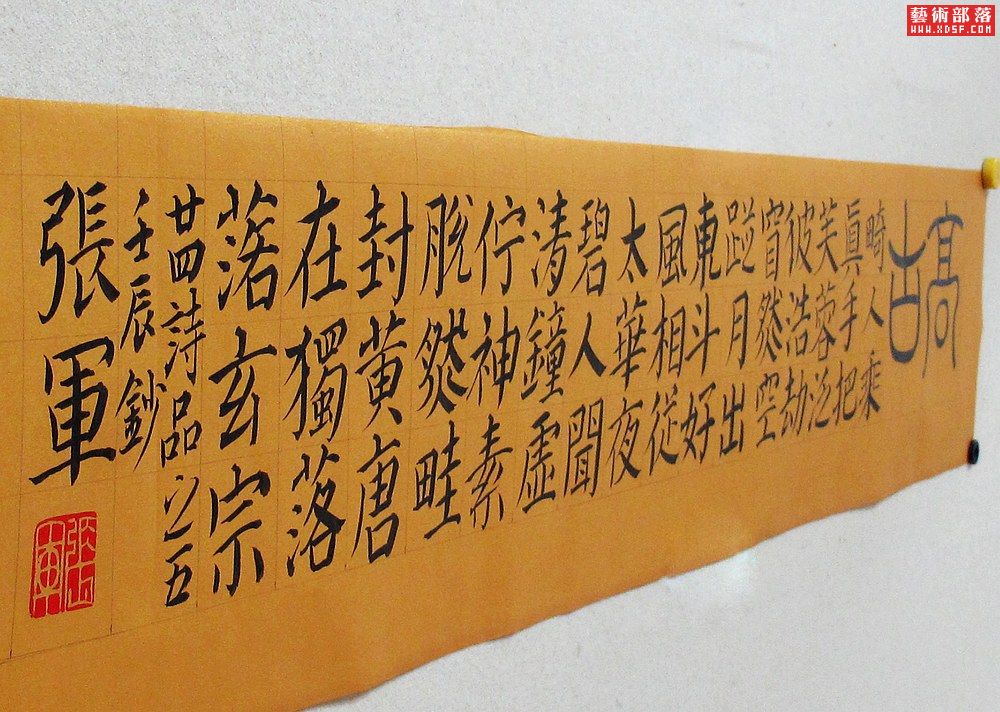 藝術部落
WWW.XDSF.COM
高古
畸人乘
眞手把
芙蓉泛
彼浩劫
窅然空
蹤月出
東斗好
風相從
太華夜
碧人聞
清鐘虛
佇神素
脫然畦
封黃唐
在獨落
落玄宗
廿四詩品之五
壬辰鈔
張軍